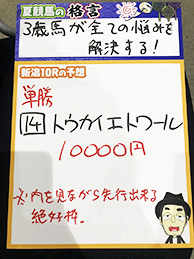 夏競馬の格言
3歳馬が全ての悩みを
解決する!
新潟10Rの予想
単勝
14 トウカイエトワール
10000円
内を見ながら先行出来る
絶好枠。